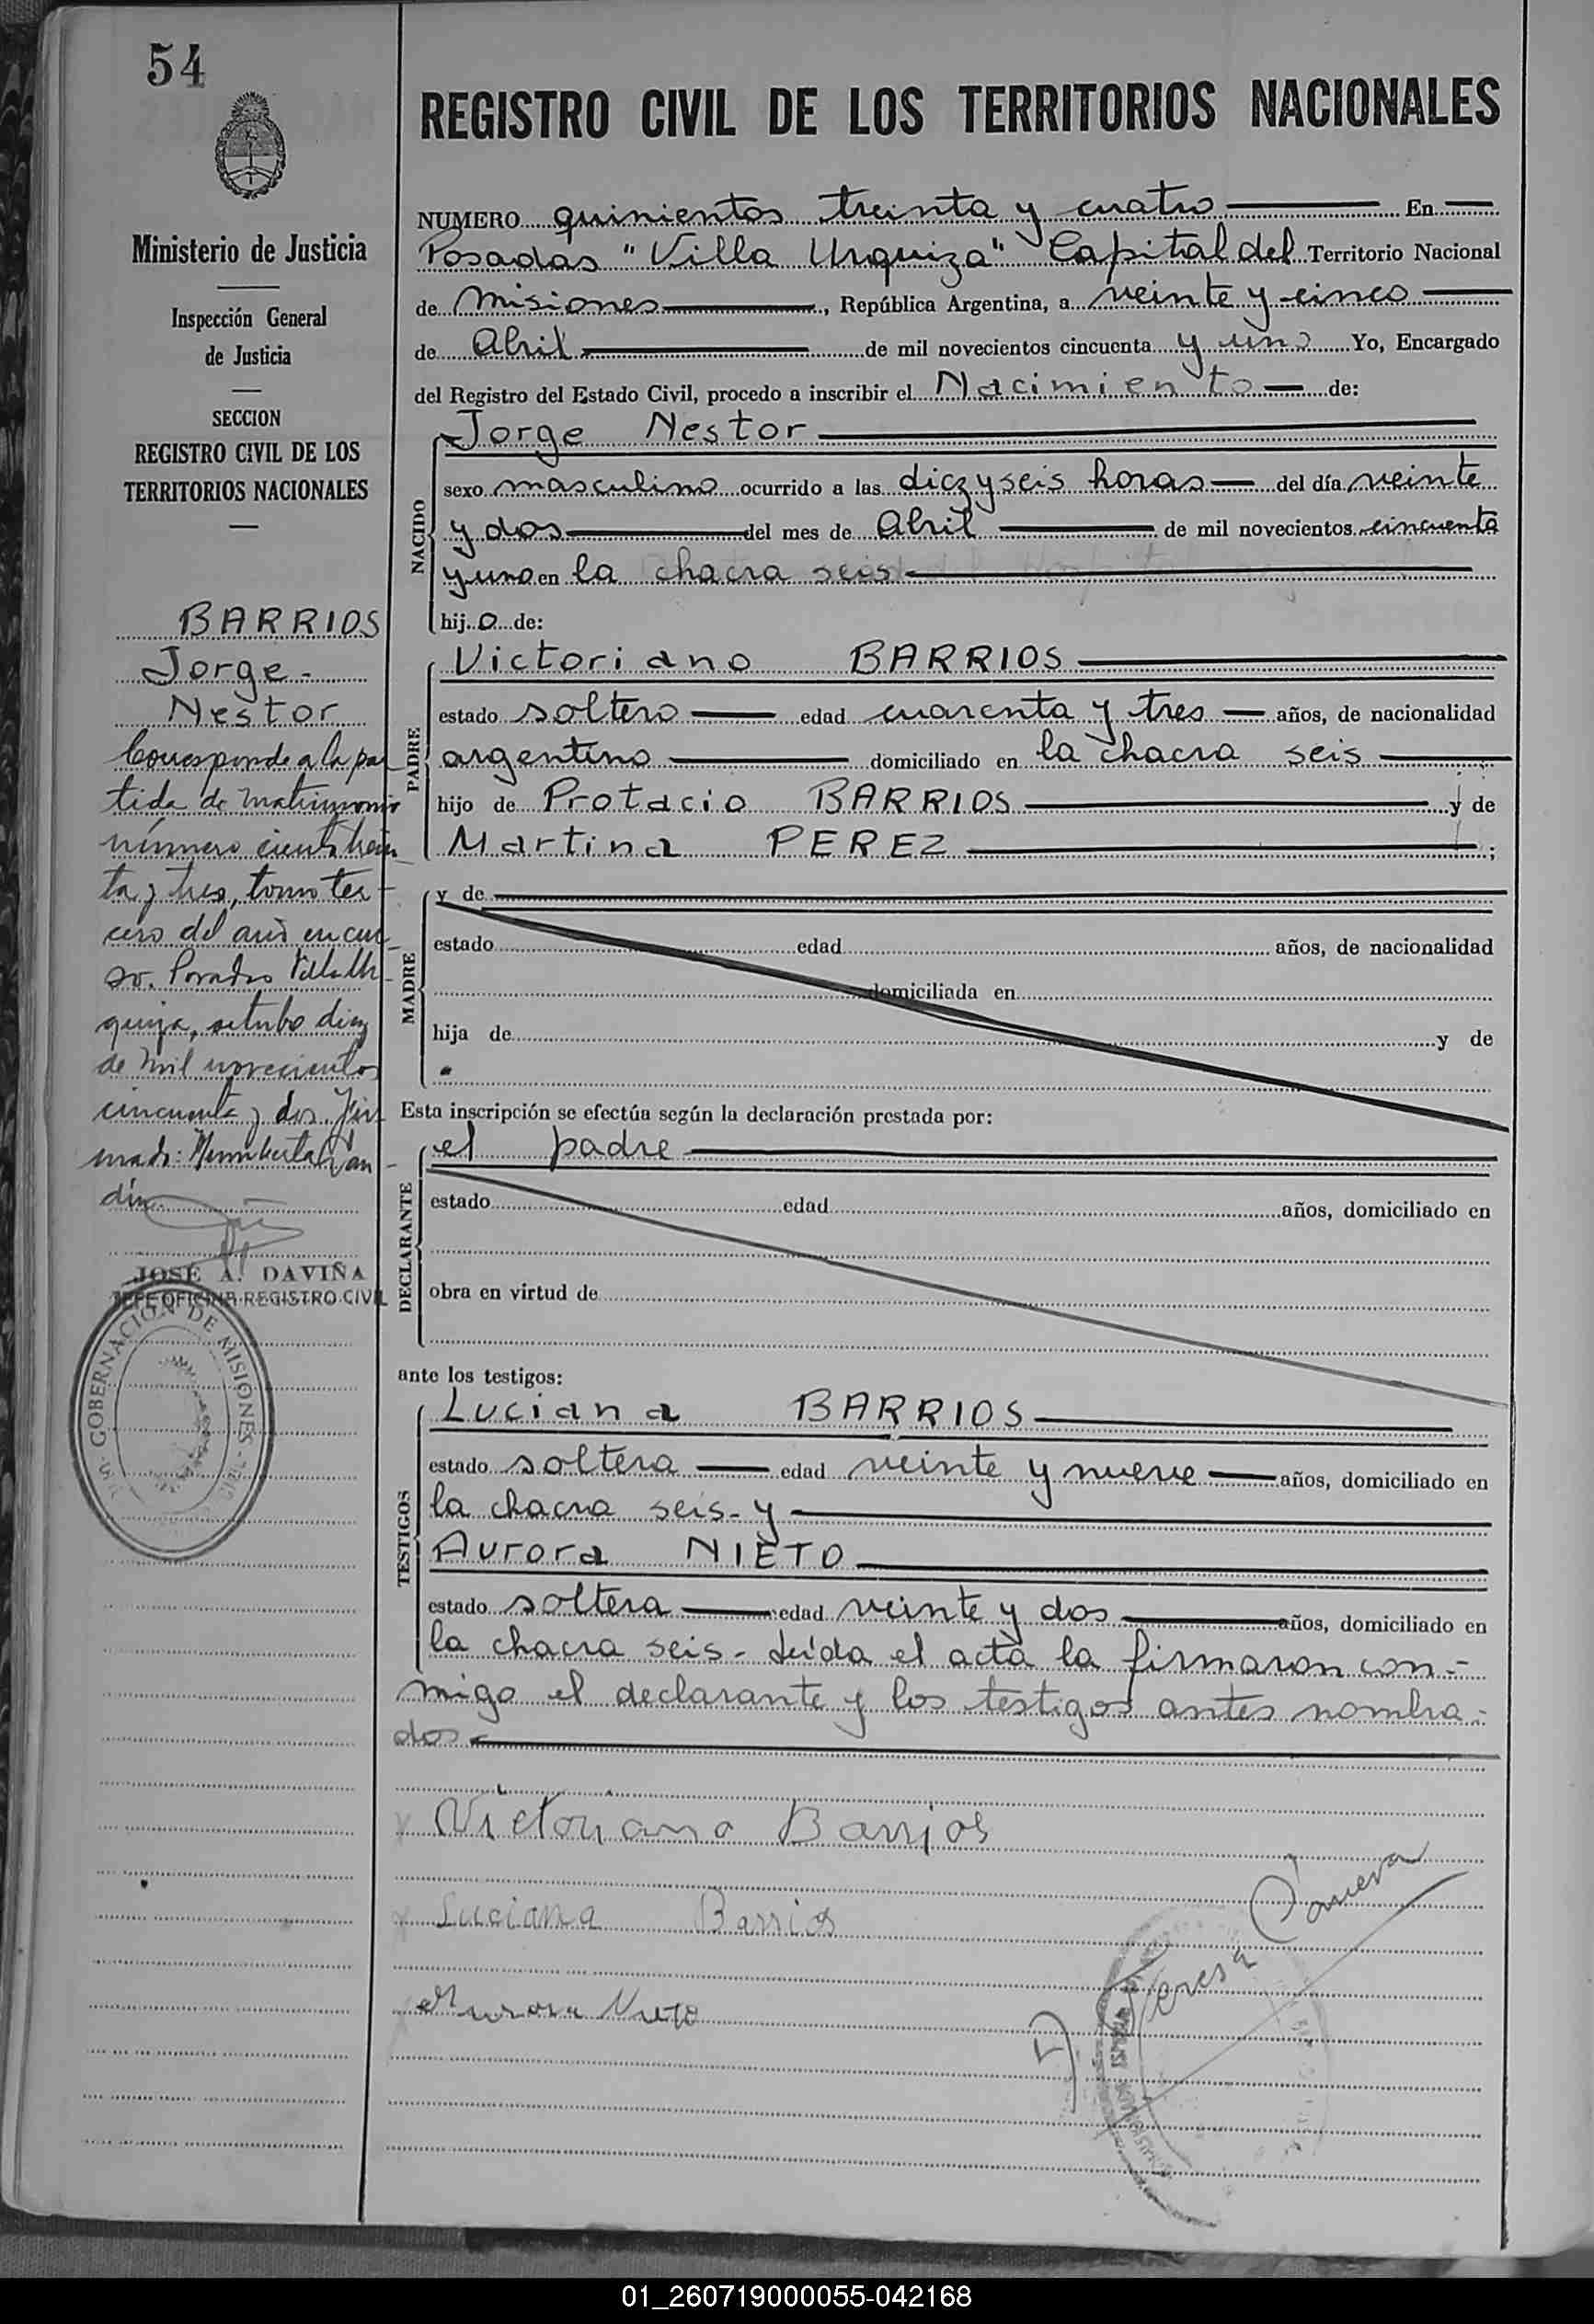 54
REGISTRO CIVIL DE LOS TERRITORIOS NACIONALES
Ministerio de Justicia
Inspección General
de Justicia
SECCION
REGISTRO CIVIL DE LOS
TERRITORIOS NACIONALES
BARRIOS
Jorge-
Nestor
Corresponde a la par
tida de matrimonio
número ciento trein
ta y tres, tomo ter
cero del año en cur
so. Posadas Villa Ur
quiza, octubre diez
de mil novecientos
cincuenta y dos. Fir
mado:
JOSÉ A. DAVIÑA
JEFE OFICINA REGISTRO CIVIL
GOBERNACION DE MISIONES
NUMERO quinientos treinta y cuatro En
Posadas "Villa Urquiza" Capital del Territorio Nacional
de Misiones, República Argentina, a veinte y cinco
de Abril de mil novecientos cincuenta y uno Yo, Encargado
del Registro del Estado Civil, procedo a inscribir el Nacimiento de:
NACIDO
Jorge Nestor
sexo masculino ocurrido a las diez y seis horas del día veinte
y dos del mes de Abril de mil novecientos cincuenta
y uno en la chacra seis
hijo de:
PADRE
Victoriano BARRIOS
estado soltero edad cuarenta y tres años, de nacionalidad
argentino domiciliado en la chacra seis
hijo de Protacio BARRIOS y de
Martina PEREZ;
MADRE
y de
estado edad años, de nacionalidad
domiciliada en
hija de y de
Esta inscripción se efectúa según la declaración prestada por:
DECLARANTE
el padre
estado edad años, domiciliado en
obra en virtud de
ante los testigos:
TESTIGOS
Luciana BARRIOS
estado soltera edad veinte y nueve años, domiciliado en
la chacra seis- y
Aurora NIETO
estado soltera edad veinte y dos años, domiciliado en
la chacra seis- Leída el acta la firmaron con-
migo el declarante y los testigos antes nombra-
dos
Victoriano Barrios
Luciana Barrios
Aurora Nieto
Teresa
01_260719000055-042168